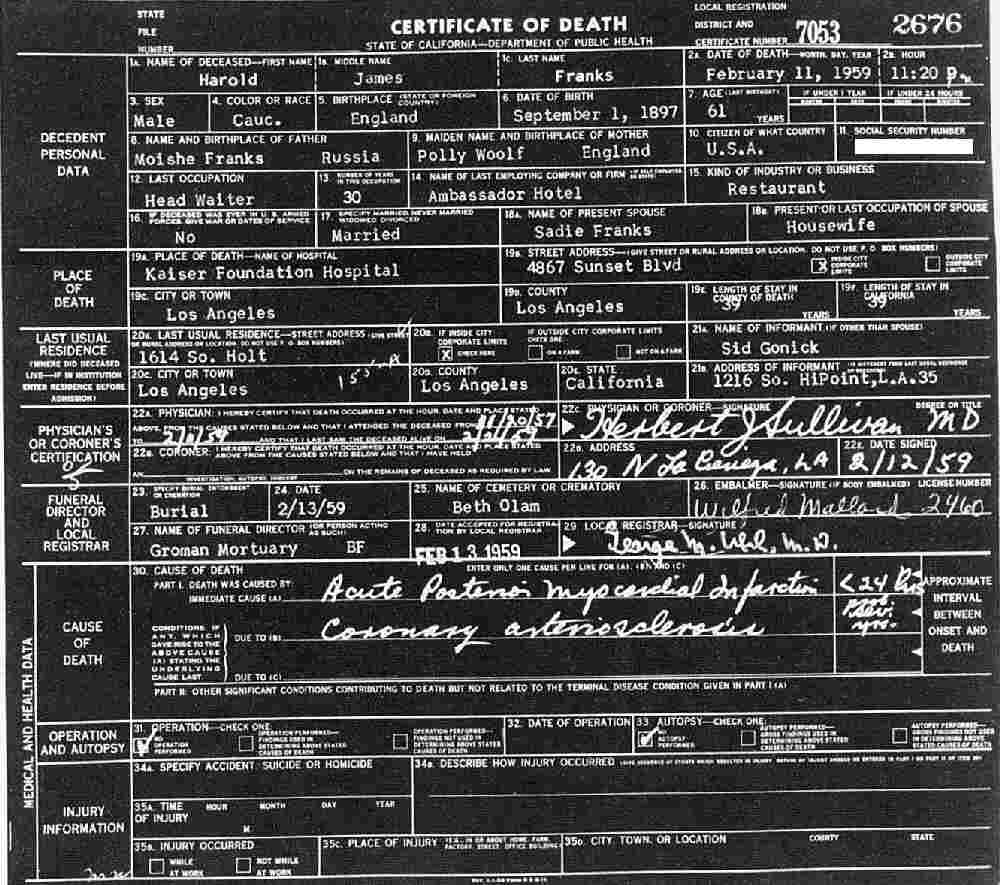 STATE FILE NUMBER
CERTIFICATE OF DEATH
STATE OF CALIFORNIA—DEPARTMENT OF PUBLIC HEALTH
LOCAL REGISTRATION DISTRICT AND CERTIFICATE NUMBER 7053 2676
DECEDENT PERSONAL DATA
1A. NAME OF DECEASED—FIRST NAME Harold
1B. MIDDLE NAME James
1C. LAST NAME Franks
2A. DATE OF DEATH—MONTH, DAY, YEAR February 11, 1959
2B. HOUR 11:20 P.M
3. SEX Male
4. COLOR OR RACE Cauc.
5. BIRTHPLACE (STATE OR FOREIGN COUNTRY) England
6. DATE OF BIRTH September 1, 1897
7. AGE (LAST BIRTHDAY) 61 YEARS
IF UNDER 1 YEAR
IF UNDER 24 HOURS
8. NAME AND BIRTHPLACE OF FATHER Moishe Franks Russia
9. MAIDEN NAME AND BIRTHPLACE OF MOTHER Polly Woolf England
10. CITIZEN OF WHAT COUNTRY U.S.A.
11. SOCIAL SECURITY NUMBER
12. LAST OCCUPATION Head Waiter
13. NUMBER OF YEARS IN THIS OCCUPATION 30
14. NAME OF LAST EMPLOYING COMPANY OR FIRM Ambassador Hotel
15. KIND OF INDUSTRY OR BUSINESS Restaurant
16. IF DECEASED WAS EVER IN U.S. ARMED FORCES, GIVE WAR OR DATES OF SERVICE No
17. SPECIFY MARRIED, NEVER MARRIED, WIDOWED, DIVORCED Married
18A. NAME OF PRESENT SPOUSE Sadie Franks
18B. PRESENT OR LAST OCCUPATION OF SPOUSE Housewife
PLACE OF DEATH
19A. PLACE OF DEATH—NAME OF HOSPITAL Kaiser Foundation Hospital
19B. STREET ADDRESS—(GIVE STREET OR RURAL ADDRESS OR LOCATION. DO NOT USE P. O. BOX NUMBERS) 4867 Sunset Blvd
X INSIDE CITY CORPORATE LIMITS
OUTSIDE CITY CORPORATE LIMITS
19C. CITY OR TOWN Los Angeles
19D. COUNTY Los Angeles
19E. LENGTH OF STAY IN COUNTY OF DEATH 39 YEARS
19F. LENGTH OF STAY IN CALIFORNIA 39 YEARS
LAST USUAL RESIDENCE
(WHERE DID DECEASED LIVE—IF IN INSTITUTION ENTER RESIDENCE BEFORE ADMISSION)
20A. LAST USUAL RESIDENCE—STREET ADDRESS (GIVE STREET OR RURAL ADDRESS OR LOCATION. DO NOT USE P. O. BOX NUMBERS) 1614 So. Holt
20B. IF INSIDE CITY CORPORATE LIMITS X CHECK HERE
IF OUTSIDE CITY CORPORATE LIMITS CHECK ONE
ON A FARM
NOT ON A FARM
21A. NAME OF INFORMANT (IF OTHER THAN SPOUSE) Sid Gonick
20C. CITY OR TOWN Los Angeles
20D. COUNTY Los Angeles
20E. STATE California
21B. ADDRESS OF INFORMANT 1216 So. HiPoint,L.A.35
PHYSICIAN'S OR CORONER'S CERTIFICATION
22A. PHYSICIAN: I HEREBY CERTIFY THAT DEATH OCCURRED AT THE HOUR, DATE AND PLACE STATED ABOVE, FROM THE CAUSES STATED BELOW AND THAT I ATTENDED THE DECEASED FROM
AND THAT I LAST SAW THE DECEASED ALIVE ON
22B. CORONER: I HEREBY CERTIFY THAT DEATH OCCURRED AT THE HOUR, DATE AND PLACE STATED ABOVE FROM THE CAUSES STATED BELOW AND THAT I HAVE HELD
AN
ON THE REMAINS OF DECEASED AS REQUIRED BY LAW
INVESTIGATION, AUTOPSY, INQUEST
22C. PHYSICIAN OR CORONER—SIGNATURE DEGREE OR TITLE Herbert J Sullivan MD
22D. ADDRESS 630 N La Cienega, LA
22E. DATE SIGNED 2/12/59
FUNERAL DIRECTOR AND LOCAL REGISTRAR
23. SPECIFY BURIAL, ENTOMBMENT OR CREMATION Burial
24. DATE 2/13/59
25. NAME OF CEMETERY OR CREMATORY Beth Olam
26. EMBALMER—SIGNATURE (IF BODY EMBALMED) LICENSE NUMBER Wilfred Mallard 2460
27. NAME OF FUNERAL DIRECTOR (OR PERSON ACTING AS SUCH) Groman Mortuary BF
28. DATE ACCEPTED FOR REGISTRATION BY LOCAL REGISTRAR FEB 13 1959
29. LOCAL REGISTRAR—SIGNATURE George M. Uhl, M.D.
MEDICAL AND HEALTH DATA
CAUSE OF DEATH
30. CAUSE OF DEATH ENTER ONLY ONE CAUSE PER LINE FOR (A), (B) AND (C)
PART I. DEATH WAS CAUSED BY:
IMMEDIATE CAUSE (A) Acute Posterior Myocardial Infarction < 24 hrs
CONDITIONS, IF ANY, WHICH GAVE RISE TO THE ABOVE CAUSE (A) STATING THE UNDERLYING CAUSE LAST.
DUE TO (B) Coronary arteriosclerosis yrs.
DUE TO (C)
APPROXIMATE INTERVAL BETWEEN ONSET AND DEATH
PART II: OTHER SIGNIFICANT CONDITIONS CONTRIBUTING TO DEATH BUT NOT RELATED TO THE TERMINAL DISEASE CONDITION GIVEN IN PART I (A)
OPERATION AND AUTOPSY
31. OPERATION—CHECK ONE:
NO OPERATION PERFORMED
OPERATION PERFORMED—FINDINGS USED IN DETERMINING ABOVE STATED CAUSES OF DEATH
OPERATION PERFORMED—FINDINGS NOT USED IN DETERMINING ABOVE STATED CAUSES OF DEATH
32. DATE OF OPERATION
33. AUTOPSY—CHECK ONE:
NO AUTOPSY PERFORMED
AUTOPSY PERFORMED—GROSS FINDINGS USED IN DETERMINING ABOVE STATED CAUSES OF DEATH
AUTOPSY PERFORMED—GROSS FINDINGS NOT USED IN DETERMINING ABOVE STATED CAUSES OF DEATH
INJURY INFORMATION
34A. SPECIFY ACCIDENT, SUICIDE OR HOMICIDE
34B. DESCRIBE HOW INJURY OCCURRED
35A. TIME OF INJURY HOUR MONTH DAY YEAR
M
35B. INJURY OCCURRED
WHILE AT WORK
NOT WHILE AT WORK
35C. PLACE OF INJURY
35D. CITY, TOWN, OR LOCATION COUNTY STATE